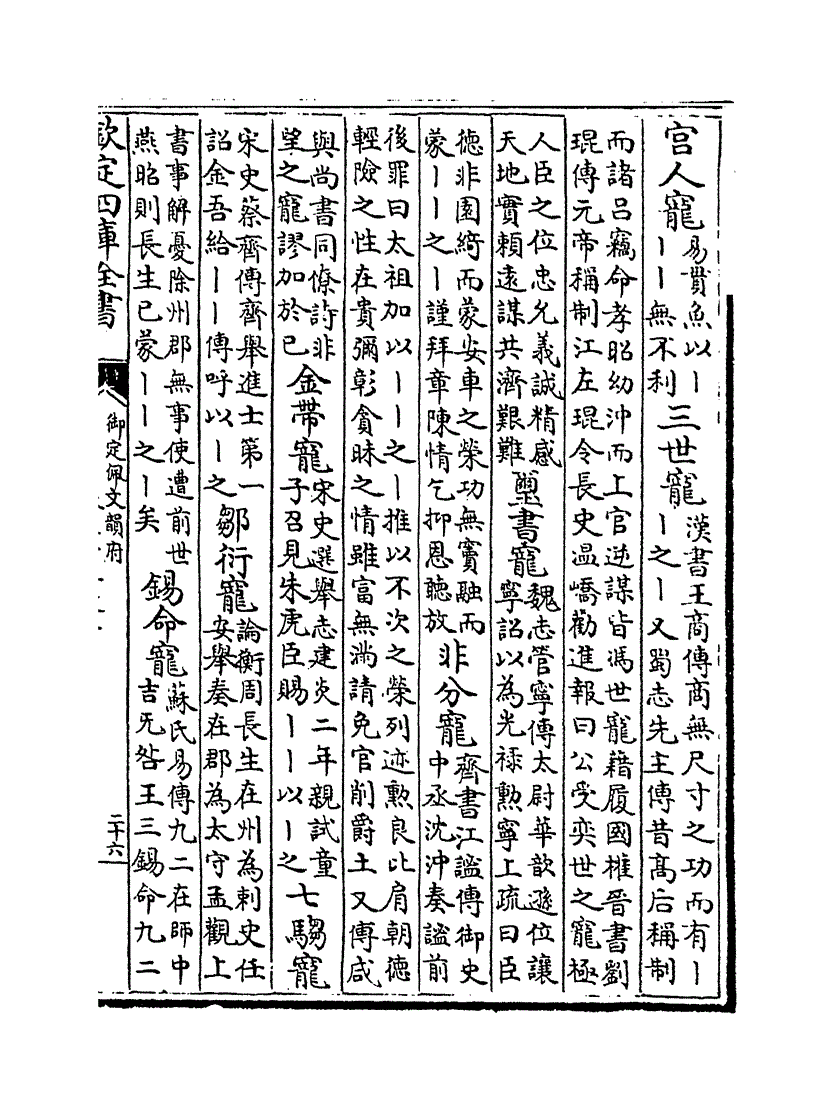 宫人寵
易貫魚以丨
丨丨無不利
三世寵
漢書王商傳商無尺寸之功而有丨
丨之丨又蜀志先主傳昔髙后稱制
而諸吕竊命孝昭幼沖而上官逆謀皆馮世寵藉履國權晉書劉
琨傳元帝稱制江左琨令長史温嶠勸進報曰公受奕世之寵極
人臣之位忠允義誠精感
天地實頼遠謀共濟艱難
璽書寵
魏志管寧傳太尉華歆遜位讓
寧詔以為光禄勲寧上疏曰臣
徳非園綺而蒙安車之榮功無竇融而
蒙丨丨之丨謹拜章陳情乞抑恩聽放
非分寵
齊書江謐傳御史
中丞沈沖奏謐前
後罪曰太祖加以丨丨之丨推以不次之榮列迹勲良比肩朝徳
輕險之性在貴彌彰貪昧之情雖富無滿請免官削爵土又傅咸
與尚書同僚詩非
望之寵謬加於已
金帶寵
宋史選舉志建炎二年親試童
子召見朱虎臣賜丨丨以丨之
七騶寵
宋史蔡齊傳齊舉進士第一
詔金吾給丨丨傳呼以丨之
鄒衍寵
論衡周長生在州為刺史任
安舉奏在郡為太守孟觀上
書事解憂除州郡無事使遭前世
燕昭則長生已蒙丨丨之丨矣
錫命寵
蘇氏易傳九二在師中
吉旡咎王三錫命九二
欽定四庫全書
御定佩文韻府
二十六